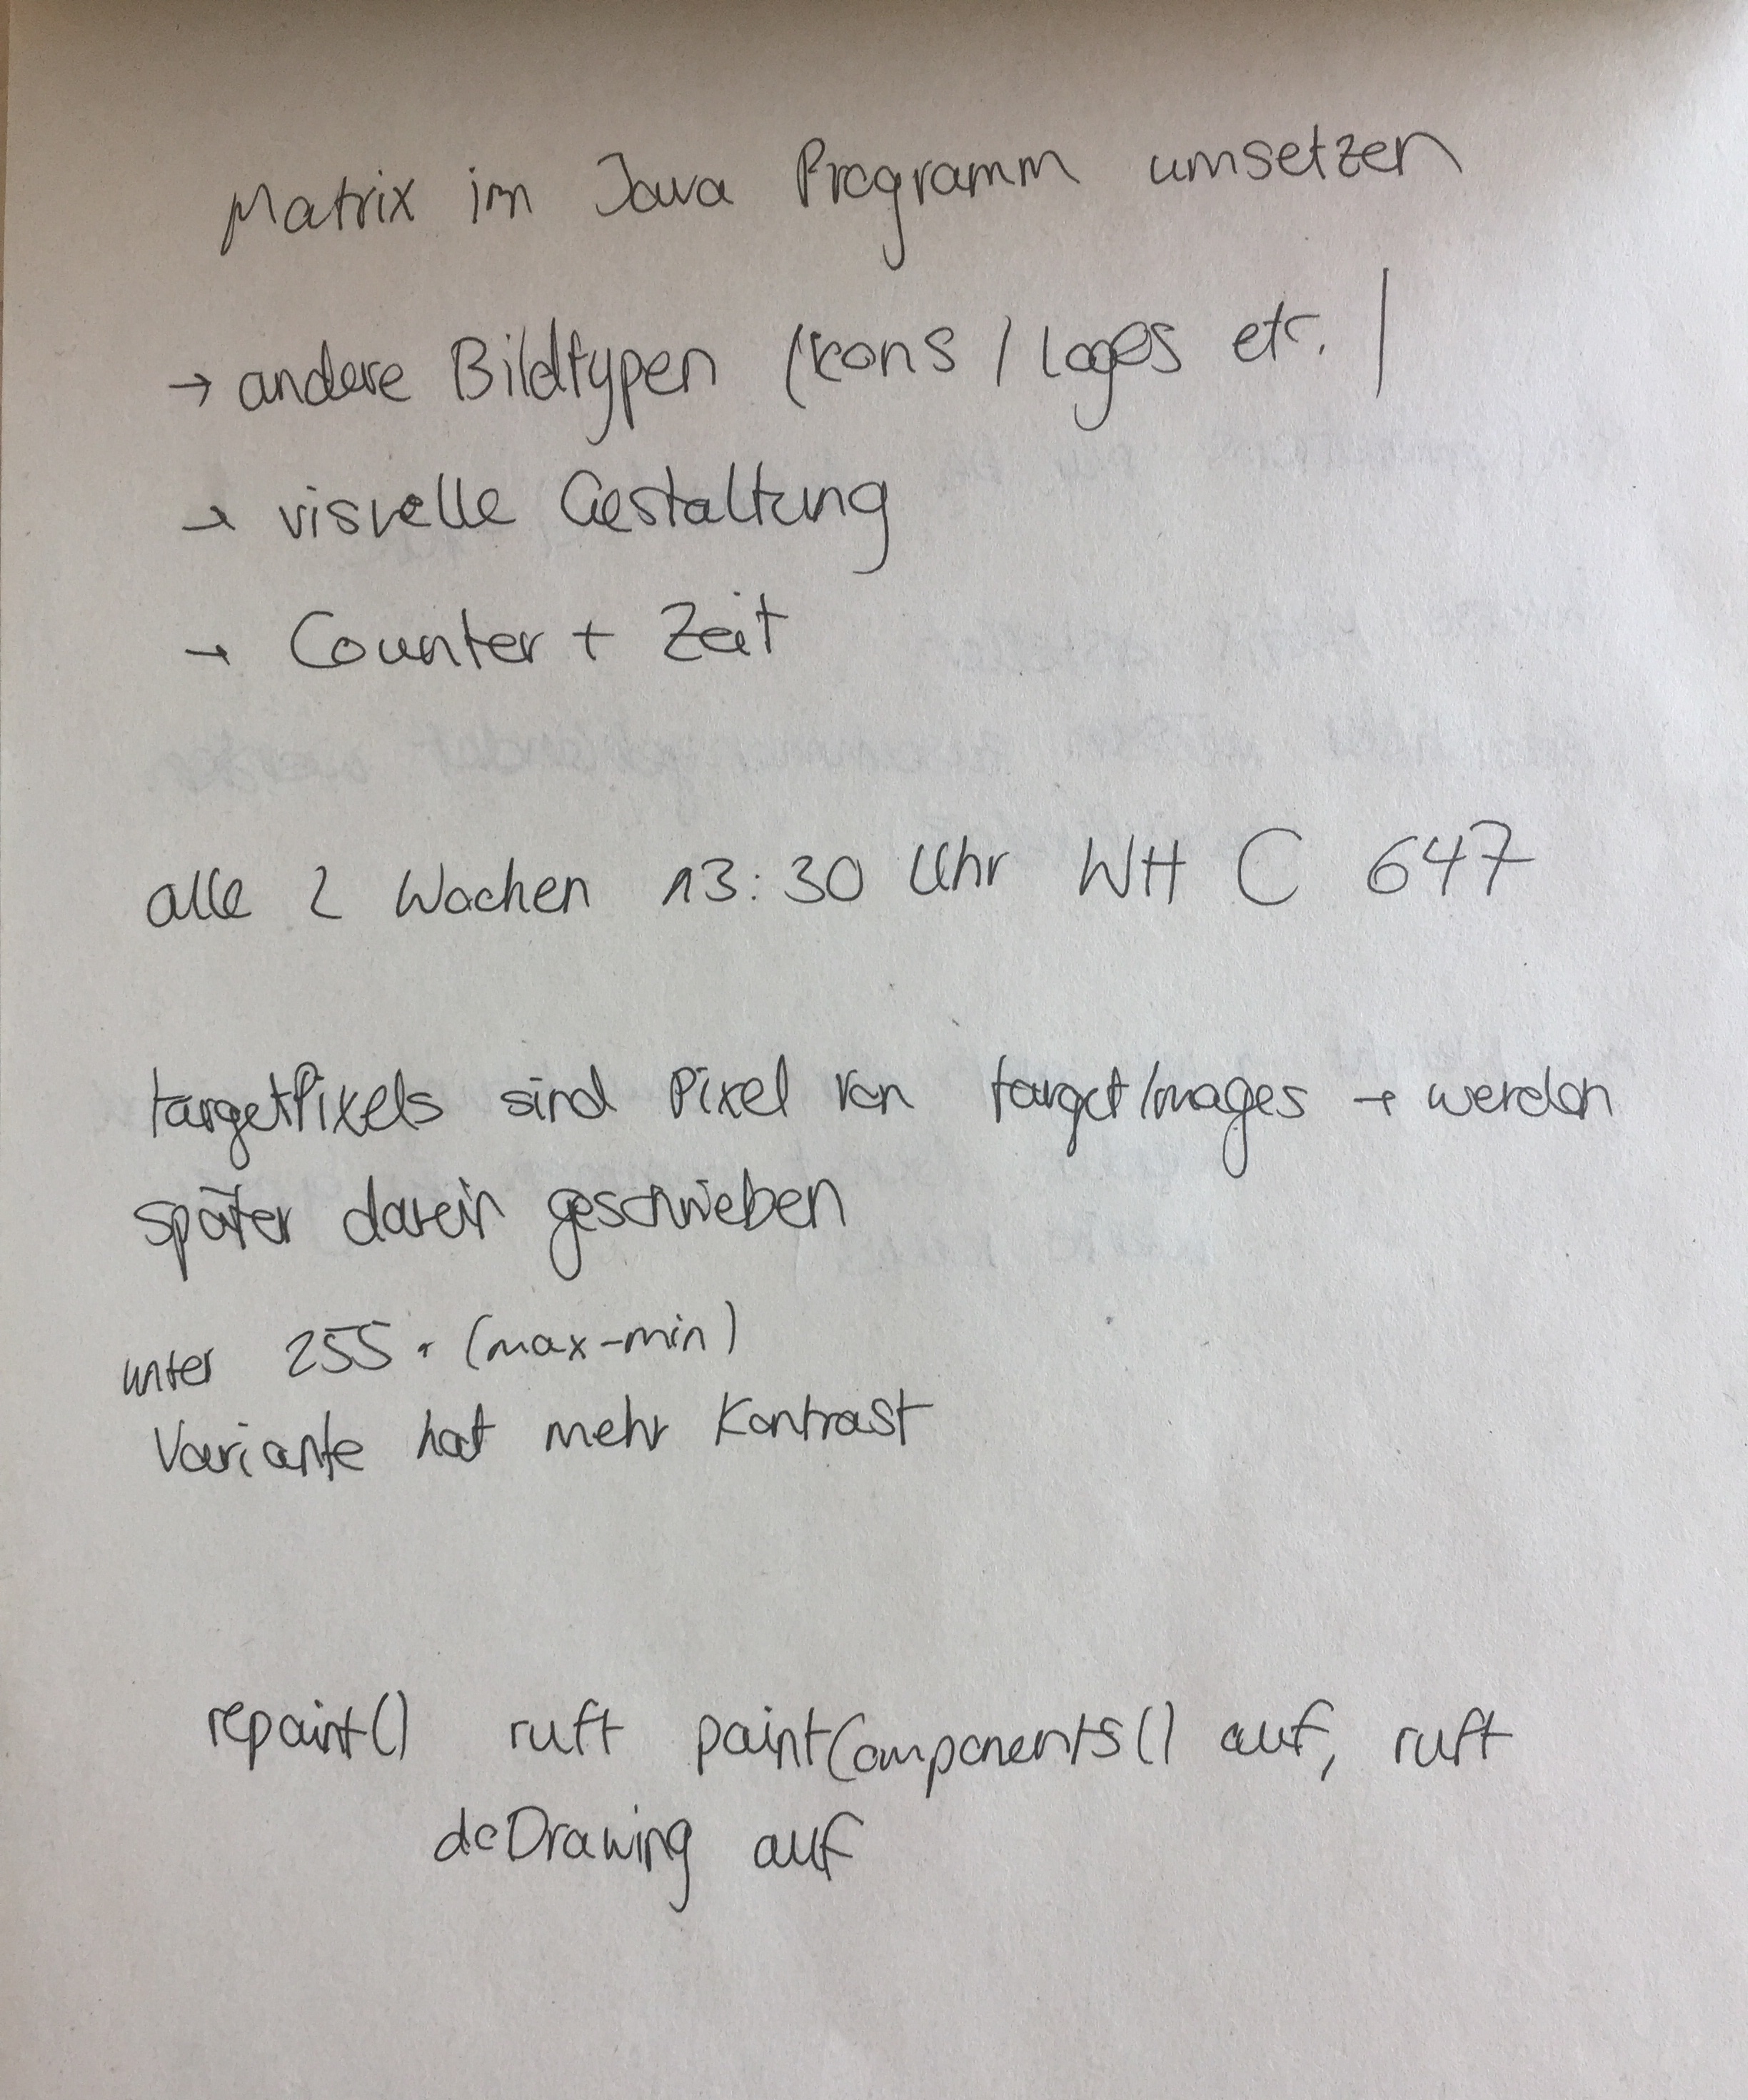 Matrix im Java Programm umsetzen
→ andere Bildtypen (Icons / Logos etc.)
→ visuelle Gestaltung
→ Counter + Zeit
alle 2 Wochen 13:30 Uhr WH C 647
targetPixels sind Pixel von targetImages → werden
später darein geschrieben
unter 255 · (max-min)
Variante hat mehr Kontrast
repaint() ruft paintComponents() auf, ruft
doDrawing auf